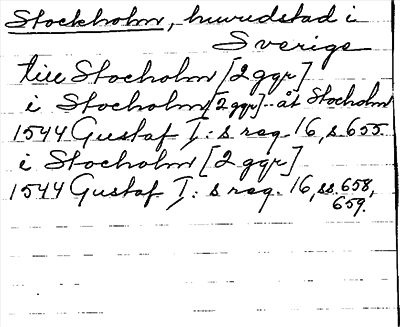 Stockholm, huvudstad i
Sverige
till Stocholm [2 ggr]
i Stocholm [2 ggr] - åt Stocholm
1544 Gustaf I:s reg. 16, s. 655.
i Stocholm [2 ggr]
1544 Gustaf I:s reg. 16, ss. 658,
659.